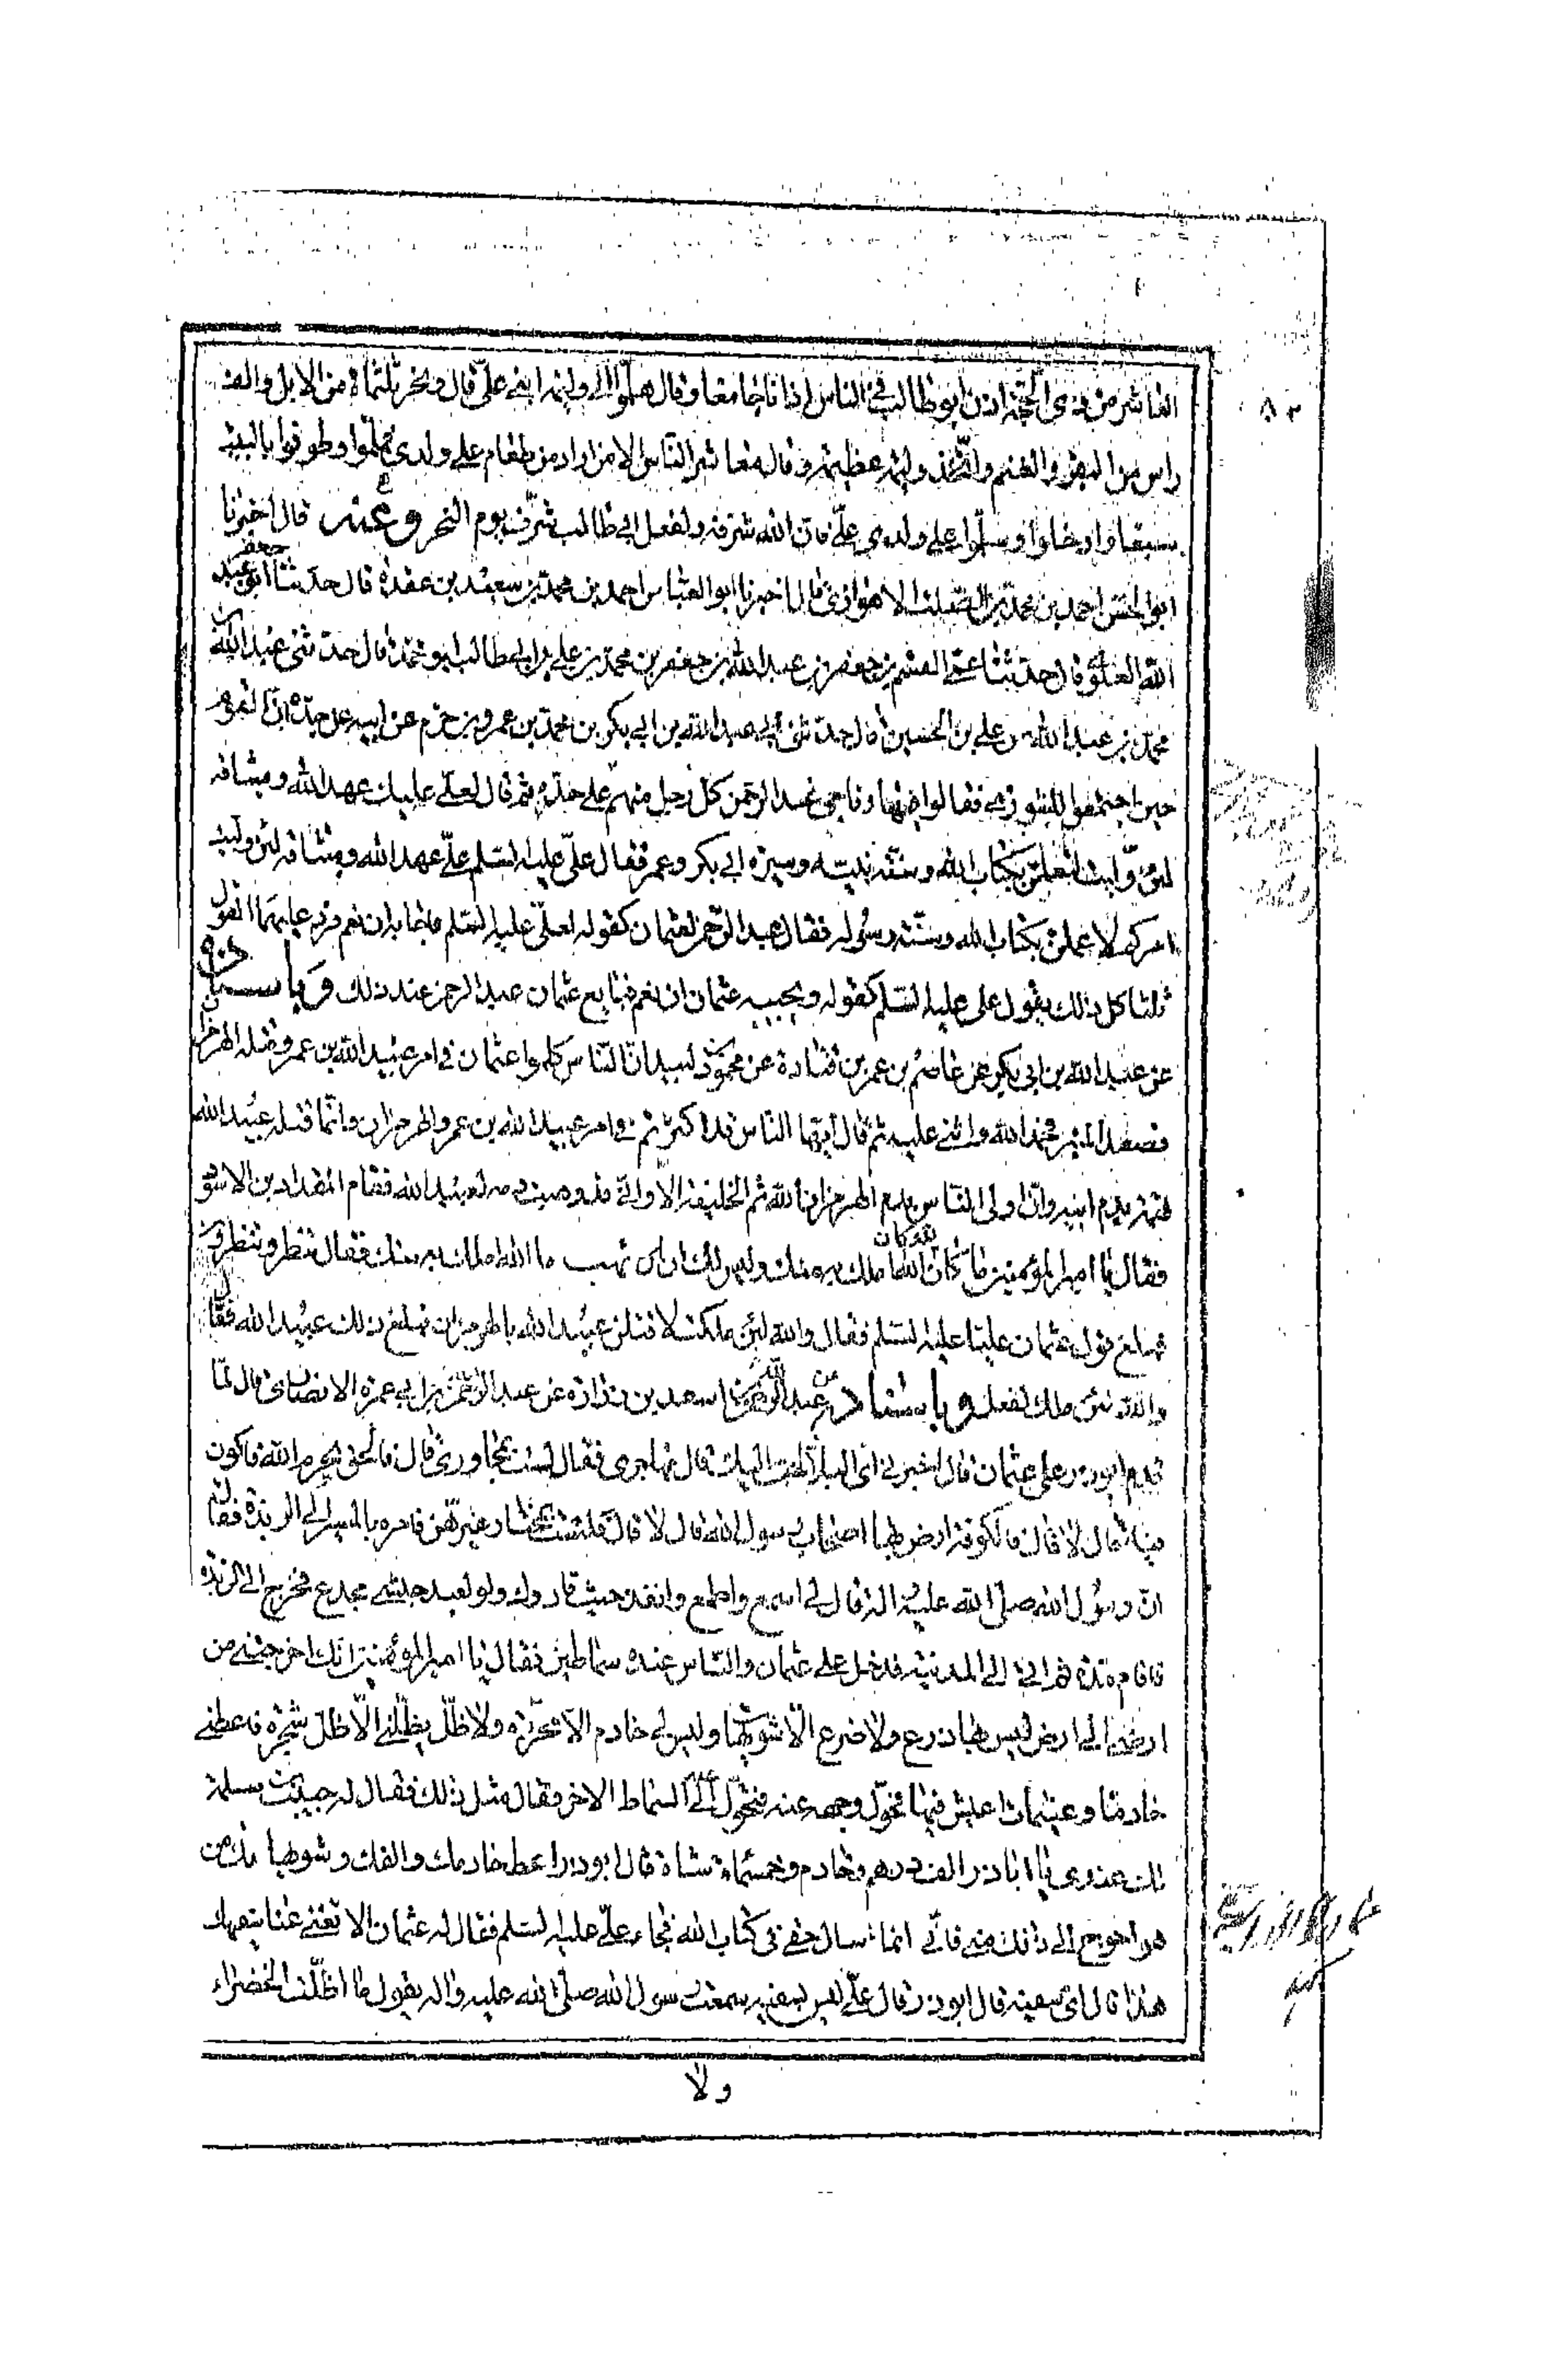 العاشر من ذي الحجة اذن ابو طالب في الناس اذانا جامعا وقال هلموا الى وليمة ابني علي قال ونحر ثلثمائة من الابل والف
راس من البقر والغنم واتخذ وليمة عظيمة وقال معاشر الناس الا من اراد من طعام علي ولدي فهلموا وطوفوا بالبيت
سبعا وادخلوا وسلموا على ولدي علي فان الله شرفه ولفعل ابي طالب شرف يوم النحر وعنه قال اخبرنا
ابو الحسن احمد بن محمد بن الصلت الاهوازي قال اخبرنا ابو العباس احمد بن محمد بن سعيد بن عقدة قال حدثنا جعفر بن عبد
الله العلوي قال حدثنا عمي القسم بن جعفر بن عبد الله بن جعفر بن محمد بن علي بن ابي طالب ابو محمد قال حدثني عبد الله بن
محمد بن عبد الله بن علي بن الحسين قال حدثني ابي عبد الله بن ابي بكر بن محمد بن عمرو بن حزم عن ابيه عن جده ان القوم
حين اجتمعوا للشورى فقالوا فيها وناجى عبد الرحمن كل رجل منهم على حدة ثم قال لعلي عليك عهد الله وميثاقه
لئن وليت لتعملن بكتاب الله وسنة نبيه وسيرة ابي بكر وعمر فقال علي عليه السلم علي عهد الله وميثاقه لئن وليت
امركم لاعملن بكتاب الله وسنة رسوله فقال عبد الرحمن لعثمان كقوله لعلي عليه السلم فاجابه ان نعم فرد عليهما القول
ثلثا كل ذلك يقول علي عليه السلم كقوله ويجيبه عثمان ان نعم فبايع عثمان عبد الرحمن عند ذلك وباسناده
عن عبد الله بن ابي بكر عن عاصم بن عمر بن قتادة عن محمود بن لبيد ان الناس كلموا عثمان في امر عبيد الله بن عمر وقتله الهرمزان
فصعد المنبر فحمد الله واثنى عليه ثم قال ايها الناس قد اكثرتم في امر عبيد الله بن عمر والهرمزان وانما قتله عبيد الله
تهمة بدم ابيه وان اولى الناس بدم الهرمزان الله ثم الخليفة الا واني قد وهبت دمه لعبيد الله فقام المقداد بن الاسود
فقال يا امير المؤمنين ما كان لله كان الله املك به منك وليس لك ان تهب ما الله املك به منك فقال ننظر وتنظرون
فبلغ قول عثمان عليا عليه السلم فقال والله لئن ملكت لاقتلن عبيد الله بالهرمزان فبلغ ذلك عبيد الله فقال
والله لئن ملك لفعل وباسناده عن عبد الله بن اسعد بن زرارة عن عبد الرحمن بن ابي عمرة الانصاري قال لما
قدم ابوذر على عثمان قال اخبرني اي البلاد احب اليك قال مهاجري فقال لست بمجاوري قال فالحق بحرم الله فاكون
فيه قال لا قال فالكوفة ارض بها اصحاب رسول الله قال لا قال فلست بمختار غيرهن فامره بالمسير الى الربذة فقال
ان رسول الله صلى الله عليه واله قال لي اسمع واطع وانفذ حيث قادوك ولو لعبد حبشي مجدع فخرج الى الربذة
فاقام مدة ثم اتى الى المدينة فدخل على عثمان والناس عنده سماطين فقال يا امير المؤمنين انك اخرجتني من
ارضي الى ارض ليس بها زرع ولا ضرع الا شويهات وليس لي خادم الا محررة ولا ظل يظلني الا ظل شجرة فاعطني
خادما وغنيمات اعيش فيها فحول وجهه عنه فتحول الى السماط الاخر فقال مثل ذلك فقال له حبيب بن مسلمة
لك عندي يا ابا ذر الف درهم وخادم وخمسمائة شاة قال ابوذر اعط خادمك والفك وشويهاتك من
هو احوج الى ذلك مني فاني انما اسال حقي في كتاب الله فجاء علي عليه السلم فقال له عثمان الا تغني عنا سفيهك
هذا قال اي سفيه قال ابوذر قال علي ليس بسفيه سمعت رسول الله صلى الله عليه واله يقول ما اظلت الخضراء
ولا